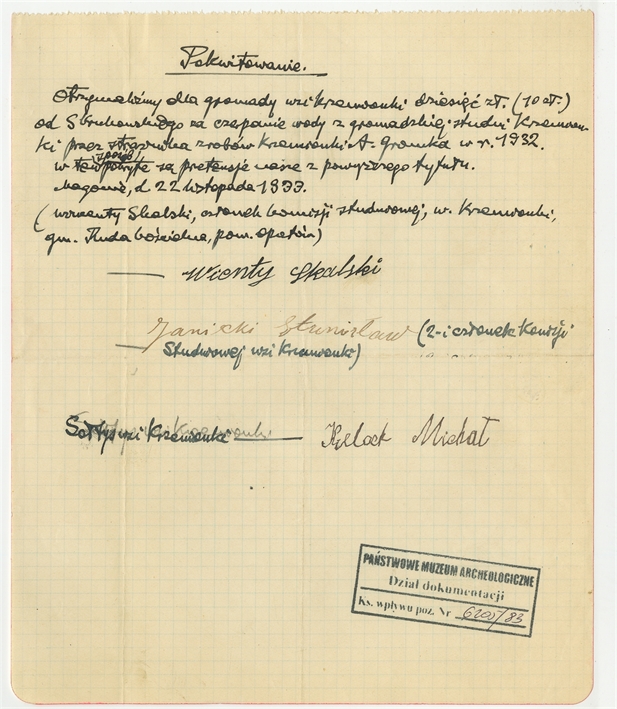 Pokwitowanie.
Otrzymaliśmy dla gromady wsi Krzemionki dziesięć zł. (10 zł.)
od S. Krukowskiego za czerpanie wody z gromadzkiej studni Krzemion-
ki przez strażnika zrobów Krzemionki A. Gromka w r. 1932.
w ten sposób pokryte są pretensje nasze z powyższego tytułu.
Magonie, d. 22 listopada 1933.
(Skalski, członek komisji studniowej, w. Krzemionki,
gm. Ruda Kościelna, pow. opatów)
Skalski
Janicki Stanisław (2-i członek Komisji
Studniowej wsi Krzemionki)
Sołtys wsi Krzemionki Michał
PAŃSTWOWE MUZEUM ARCHEOLOGICZNE
Dział dokumentacji
Ks. wpływu poz. Nr /83